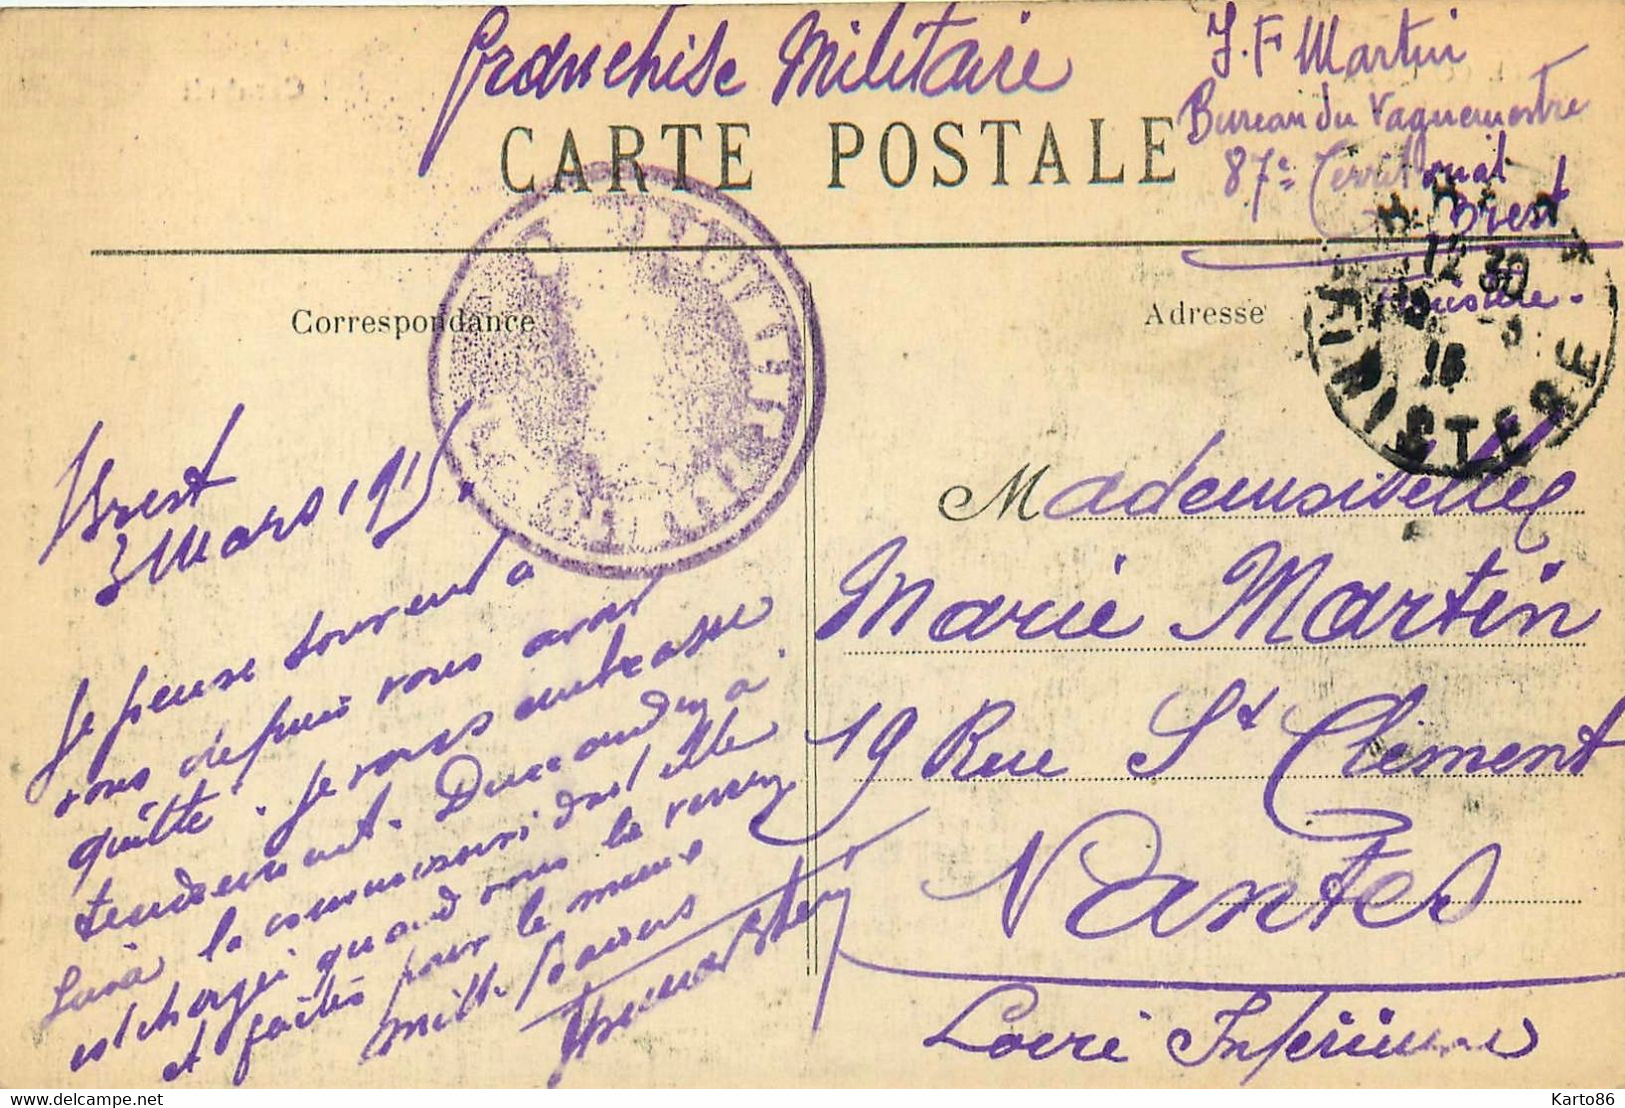 Franchise Militaire
J. F Martin
Bureau du Vaguemestre
87e Territorial
Brest
Finistère.
CARTE POSTALE
Correspondance
Adresse
12 30
15
FINISTERE
Brest
3 Mars 1915.
Je pense souvent à
vous depuis vous avoir
quitté. Je vous embrasse
tendrement. Demandez à
Luisa la commission dont elle
est chargée quand vous la verrez
et faites pour le mieux
Mille baisers
Mademoiselle
Marie Martin
19 Rue St Clément
Nantes
Loire Inférieure
delcampe.net
Karto86